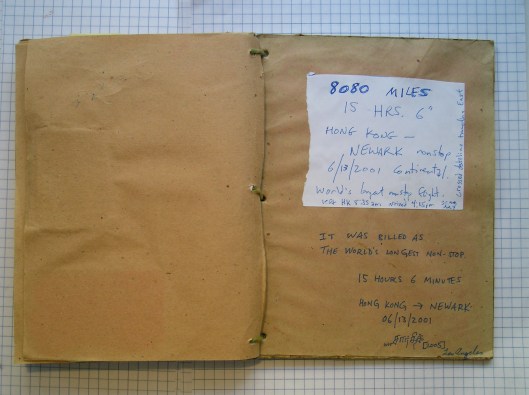 8080 MILES
15 HRS. 6"
HONG KONG —
NEWARK nonstop
6/13/2001 Continental.
World's longest nonstop flight.
HK
IT WAS BILLED AS
THE WORLD'S LONGEST NON-STOP.
15 HOURS 6 MINUTES
HONG KONG → NEWARK
06/13/2001
[2005]
Los Angeles